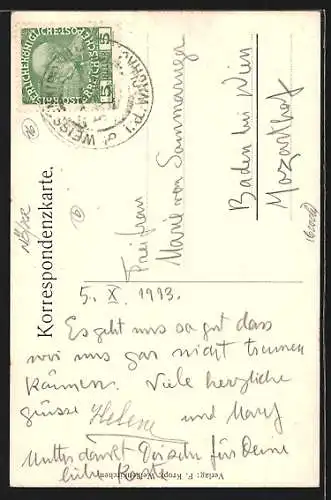 Korrespondenzkarte.
5
5
WEISS
Freifrau
Marie von Sommaruga
Baden bei Wien
Mozarthof
5. X. 1913.
Es geht uns so gut dass
wir uns gar nicht trennen
können. Viele herzliche
grüsse Helene und Mary
Mutter dankt für Deine
liebe Post
Verlag: F. Kropp,